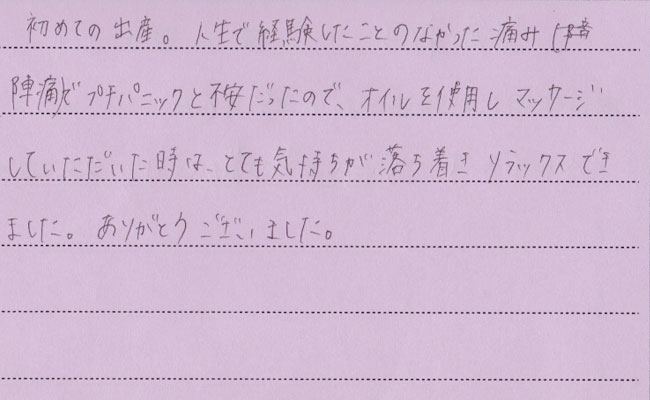 初めての出産。人生で経験したことのなかった痛み
陣痛でプチパニックと不安だったので、オイルを使用しマッサージ
していただいた時は、とても気持ちが落ち着きリラックスでき
ました。ありがとうございました。